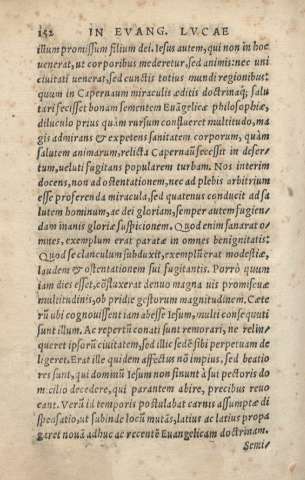 152 IN EVANG. LVCAE
illum promissum filium dei. Iesus autem, qui non in hoc
venerat, ut corporibus mederetur, sed animis: nec uni
civitati venerat, sed cunctis totius mundi regionibus:
quum in Capernaum miraculis ac doctrina, salu
tari fecisset bonam sementem Euãgelicæ philosophiæ,
diluculo prius quàm rursum conflueret multitudo, ma
gis admirans & expetens sanitatem corporum, quàm
salutem animarum, relicta Capernaũ secessit in deser/
tum, ueluti fugitans popularem turbam. Nos interim
docens, non ad ostentationem, nec ad plebis arbitrium
esse proferenda miracula, sed quatenus conducit ad sa
lutem hominum, ac dei gloriam, semper autem fugien/
dam inanis gloriæ suspicionem. Quod enim sanarat o/
mnes, exemplum erat paratæ in omnes benignitatis:
Quod se clanculum subduxit, exemplũ erat modestiæ,
laudem & ostentationem sui fugitantis. Porrò quum
iam dies esset, cõfluxerat denuo magna uis promiscuæ
multitudinis, ob pridie gestorum magnitudinem. Cæte
rũ ubi cognouissent iam abesse Iesum, multi consequuti
sunt illum. Ac repertũ conati sunt remorari, ne relin/
queret ipsorũ ciuitatem, sed illic sedē sibi perpetuam de
ligeret. Erat ille quidem affectus nõ impius, sed beatio
res sunt, qui dominũ Iesum non sinunt à sui pectoris do
micilio decedere, qui parantem abire, precibus reuo
cant. Verũ id temporis postulabat carnis assumptæ di
spensatio, ut subinde locũ mutãs, latius ac latius propa
garet nouã adhuc ac recentē Euangelicam doctrinam.
Semi/